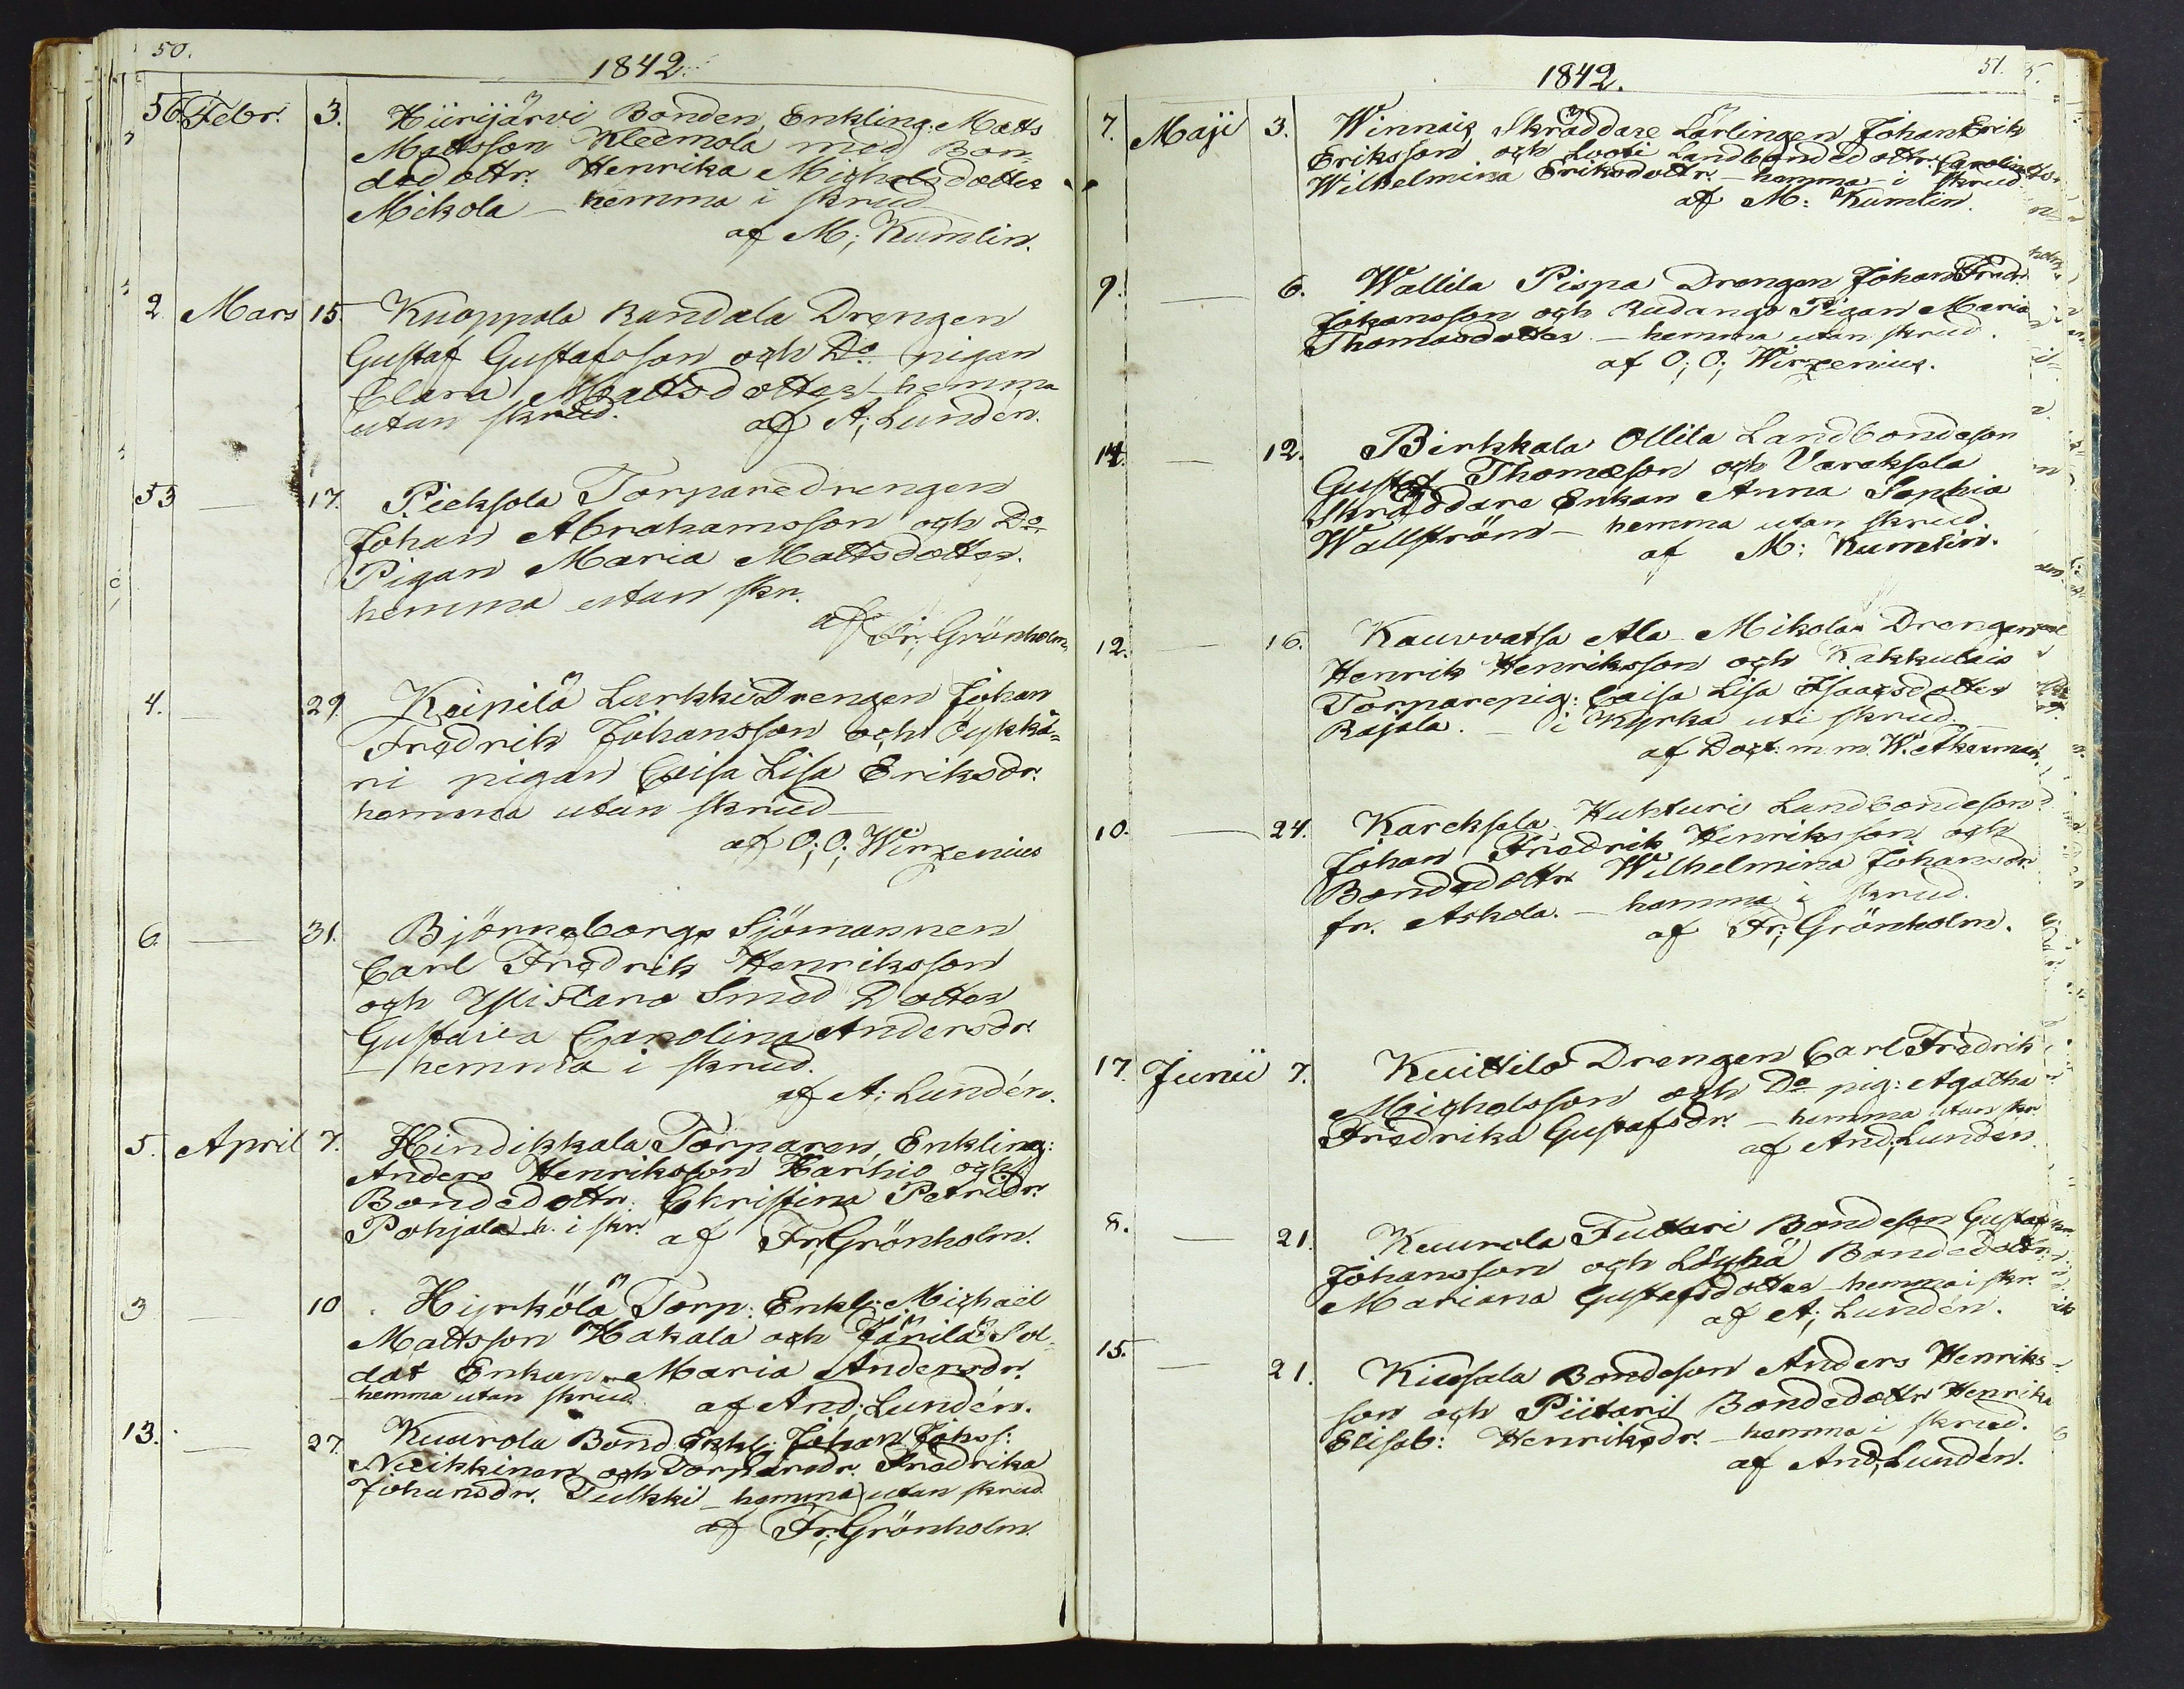 50.
1842.
56. Febr. 3. Hiirijärvi Bonden Enkling: Matts
Mattsson Kleemola med Bon-
dedottr: Henrika Michelsdotter
Mikola – hemma i skrud
af M; Kumlin.
2 Mars 15. Knoppala Randala Drengen
Gustaf Gustafsson och Do pigan
Clara Mattsdotter – hemma
utan skrud. af A; Lundén.
53 — 17. Pieksola Torparedrengen
Johan Abrahamsson och Do
Pigan Maria Mattsdotter.
hemma utan skr.
af Fr; Grönholm
4. — 29. Keipilä Lurkki Drengen Johan
Fredrik Johansson och Pykkä-
ri pigan Caisa Lisa Eriksdr.
hemma utan skrud —
af O; O; Wirzenius
6. — 31. Björneborgs Sjömannen
Carl Fredrik Henriksson
och Ylistaro Smed Dotter
Gustava Carolina Andersdr.
– hemma i skrud.
af A: Lundén.
5. April 7. Hindikkala Torparen, Enkling:
Anders Henriksson Harhio och
Bondedottr: Christina Petridr.
Pohjala h. i skr. af Fr; Grönholm.
3 — 10. Hyrkölä Torp: Enkl: Michaël
Mattsson Hakala och Järilä Sol-
dat Enkan Maria Andersdr.
– hemma utan skrud. af And; Lundén.
13. — 27. Kuurola Bond: Enkl: Johan Johss:
Nuikkinen och Torparedr. Fredrika
Johansdr. Tulkki – hemma utan skrud
af Fr; Grönholm.
1842.
51.
7. Maji 3. Winnais Skräddare Lärlingen Johan Erik
Eriksson och Looti Landbondedottr: Carolina
Wilhelmina Eriksdottr. – hemma – i skrud.
af M: Kumlin.
9. — 6. Wallila Pispa Drengen Johan Fredr.
Johansson och Rudango Pigan Maria
Thomasdotter – hemma utan skrud.
af O; O; Wirzenius.
14. — 12. Birkkala Ollila Landbondeson
Gustaf Thomæson och Varaksola
Skräddare Enkan Anna Sophia
Wallström – hemma utan skrud
af M; Kumlin.
12. — 16. Kauvatsa Ala Mikola Drengen
Henrik Henriksson och Kakkulais
Torparepig: Caisa Lisa Isaacsdotter
Rajala. – i Kyrka uti skrud. –
af Doct: m. m. W. Akerman.
10. — 24. Kareksela Huhturi Landbondeson
Johan Fredrik Henriksson och
Bondedottr Wilhelmina Johansdr.
fr. Askola. – hemma i skrud.
af Fr; Grönholm.
17. Junii 7. Kuittilo Drengen Carl Fredrik
Michelsson och Do pig: Agatha
Fredrika Gustafsdr. – hemma utan skr
af And; Lunden.
8. — 21. Kuurola Tuttari Bondeson Gustaf
Johansson och Löyhä Bondedottr:
Mariana Gustafsdotter – hemma i skr.
af A; Lundén.
15. — 21. Kiusala Bondeson Anders Henriks-
son och Piitari Bondedottr Henrika
Elisab: Henriksdr. – hemma i skrud.
af And; Lundén.